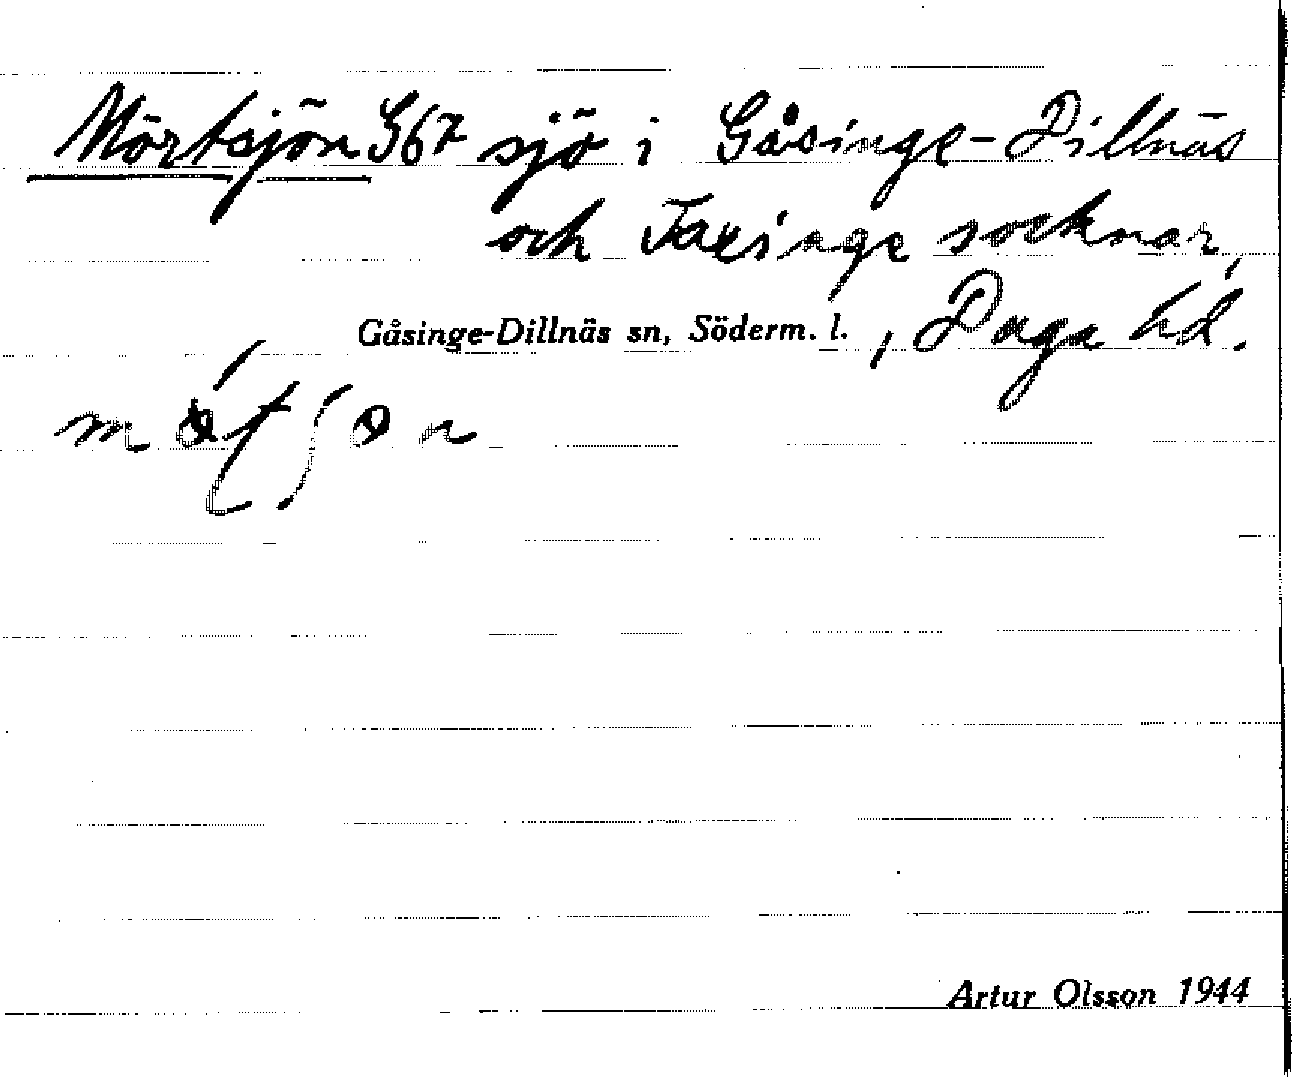 Mörtsjön G67 sjö i Gåsinge-Dillnäs
och Taxinge socknar,
Gåsinge-Dillnäs sn, Söderm. l. , Daga hd.
Artur Olsson 1944